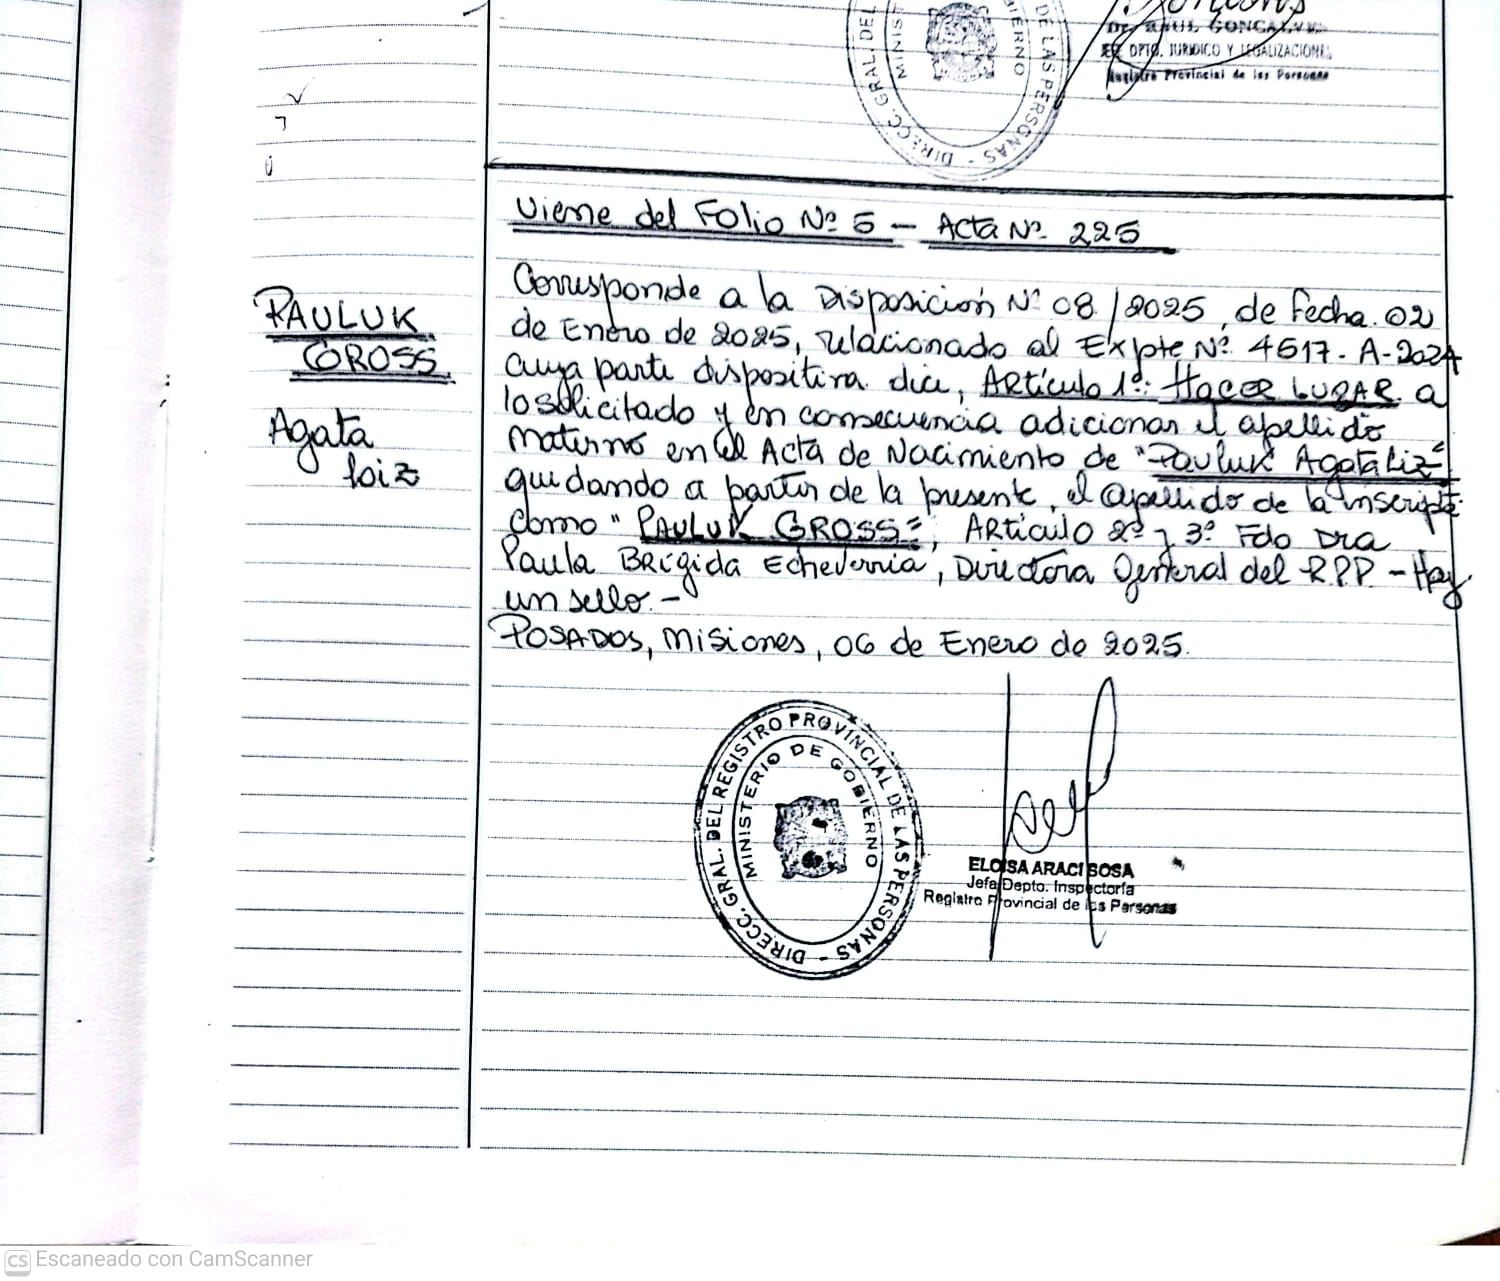 Dr. RAUL GONCALVES
DPTO. JURIDICO Y LEGALIZACIONES
Registro Provincial de las Personas
DIRECC. GRAL. DEL
DE LAS PERSONAS
MINIST
GOBIERNO
Viene del Folio Nº 5 - Acta Nº 225
PAULUK
GROSS.
Agata
Liz
Corresponde a la Disposición Nº 08/2025, de fecha 02
de Enero de 2025, relacionado al Expte Nº 4517-A-2024
cuya parte dispositiva dice, Artículo 1º: HACER LUGAR a
lo solicitado y en consecuencia adicionar el apellido
materno en el Acta de Nacimiento de "Pauluk Agata Liz"
quidando a partir de la presente, el apellido de la inscripta
como "PAULUK GROSS"; Artículo 2º y 3º Fdo Dra
Paula Brígida Echeverria, Directora General del R.P.P. - Hay
un sello.-
POSADOS, Misiones, 06 de Enero de 2025.
DIRECC. GRAL. DEL REGISTRO PROVINCIAL DE LAS PERSONAS -
MINISTERIO DE GOBIERNO
ELOISA ARACI SOSA
Jefa Depto. Inspectoría
Registro Provincial de las Personas
CS Escaneado con CamScanner